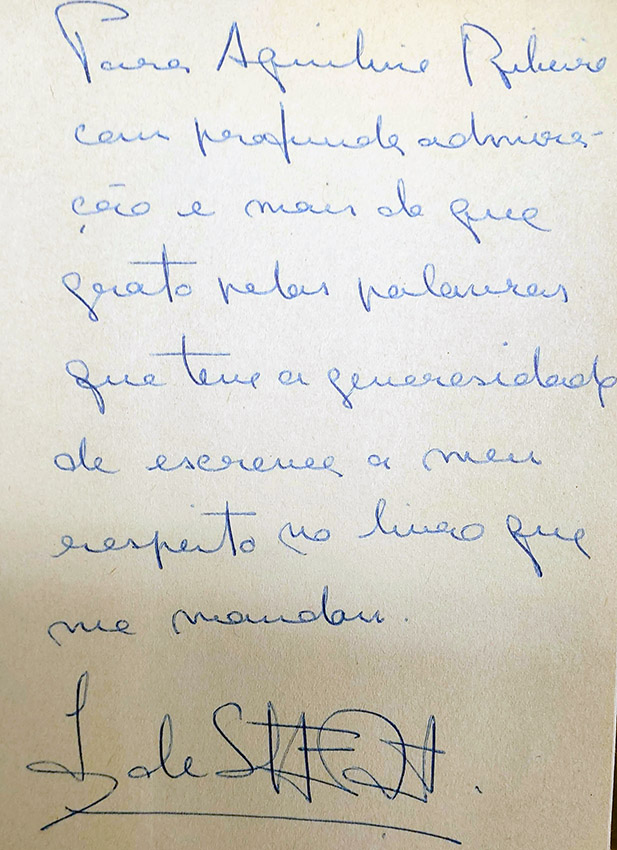 Para Aquilino Ribeiro
com profunda admira-
ção e mais do que
grato pelas palavras
que teve a generosidade
de escrever a meu
respeito no livro que
me mandou.